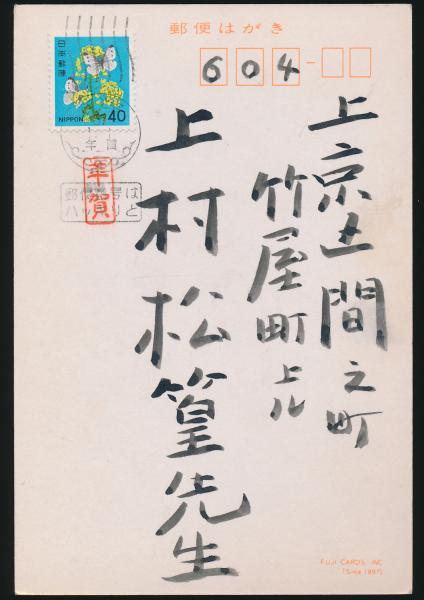 郵便はがき
604
日本郵便
NIPPON 40
年賀
年賀
郵便番号は
ハッキリと
上京区間之町
竹屋町上ル
上村松篁先生
FUJI CARDS INC
(Since 1897)